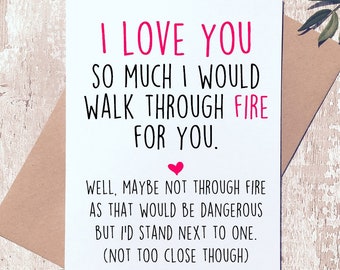 I LOVE YOU
SO MUCH I WOULD
WALK THROUGH FIRE
FOR YOU.
WELL, MAYBE NOT THROUGH FIRE
AS THAT WOULD BE DANGEROUS
BUT I'D STAND NEXT TO ONE.
(NOT TOO CLOSE THOUGH)